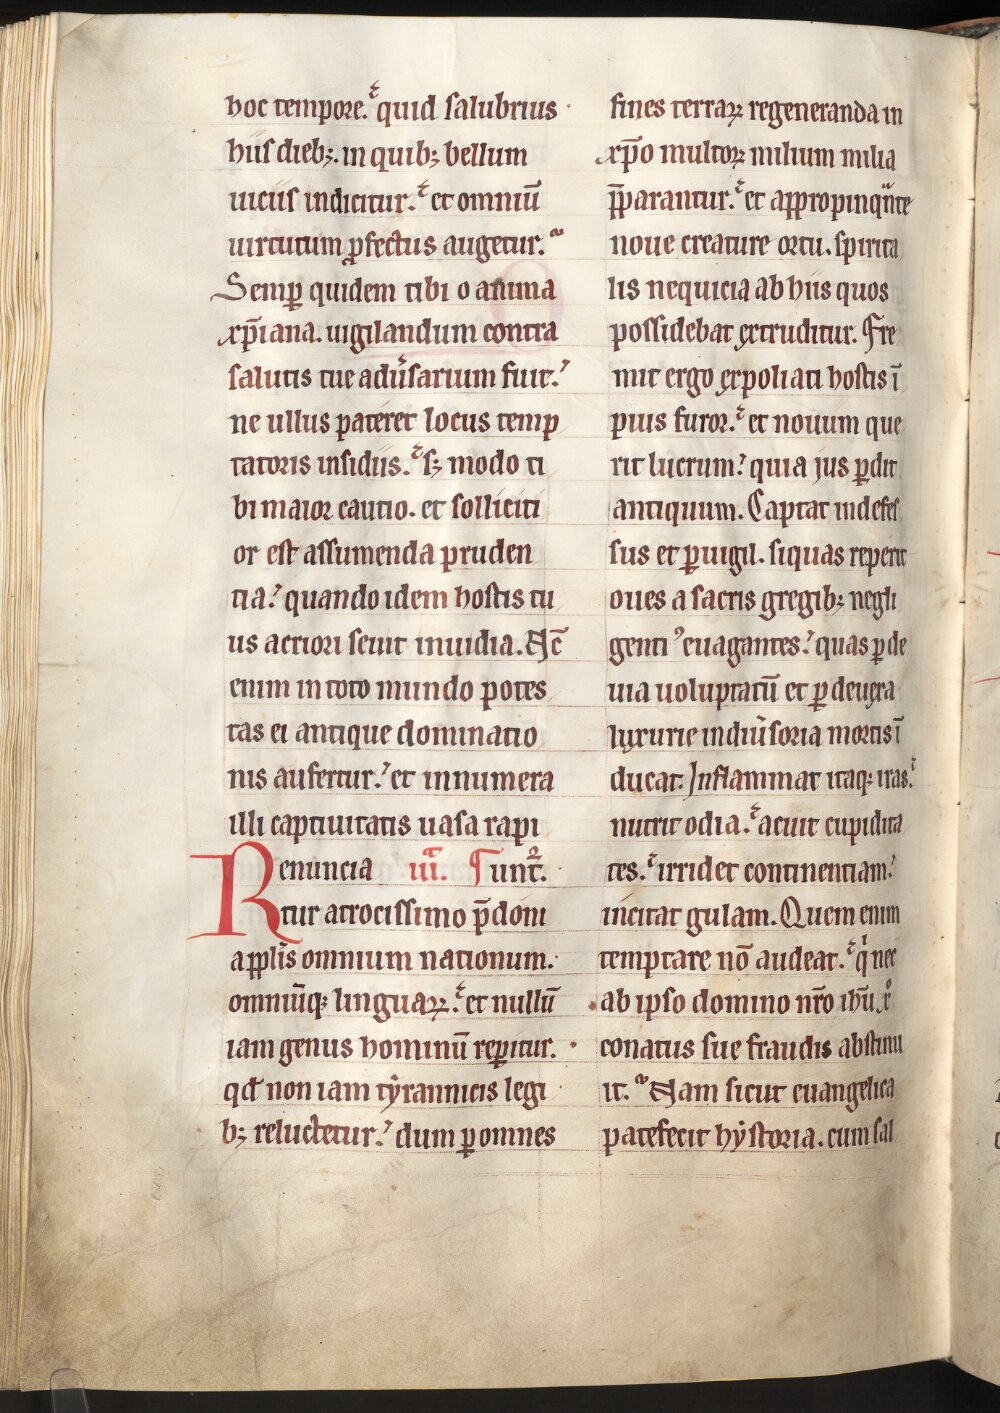 hoc tempore. quid salubrius
hiis dieb; in quib; bellum
uiciis indicitur. et omniū
uirtutum ꝓfectus augetur.
Semꝑ quidem tibi o anima
xp̄iana. uigilandum contra
salutis tue adu̾sarium fuit.
ne ullus pateret locus temp
tatoris insidiis. s; modo ti
bi maior cautio. et solliciti
or est assumenda pruden
tia. quando idem hostis tu
us acriori seuit inuidia. Nc̄
enim in toto mundo potes
tas ei antique dominatio
nis aufertur. et innumera
illi captiuitatis uasa rapi
Renuncia iiia. ¶ unt᷑.
tur atrocissimo p̄doni
a pplis omnium nationum.
omniūq; linguaꝝ. et nullū
iam genus hominū reꝑitur.
qd̄ non iam tẏrannicis legi
b; reluctetur. dum ꝑ omnes
fines terraꝝ regeneranda in
xp̄o multoꝝ milium milia
p̄parantur. et appropinqnte
noue creature ortu. spirita
lis nequicia ab hiis quos
possidebat extruditur. Fre
mit ergo expoliati hostis ī
pius furor. et nouum que
rit lucrum. quia jus ꝑdit
antiquum. Captat indefes
sus et ꝑuigil. siquas reperit
oues a sacris gregib; negli
genti ꝰ euagantes. quas ꝑ de
uia uoluptatū et ꝑ deuexa
luxurie in diu̾soria mortis ī
ducat. Inflammat itaq; iras.
nutrit odia. acuit cupidita
tes. irridet continentiam.
incitat gulam. Quem enim
temptare nō audeat. q̇ nec
ab ipso domino nr̄o ihū xͦ
conatus sue fraudis abstinu
it. Nam sicut euangelica
patefecit hẏstoria. cum sal